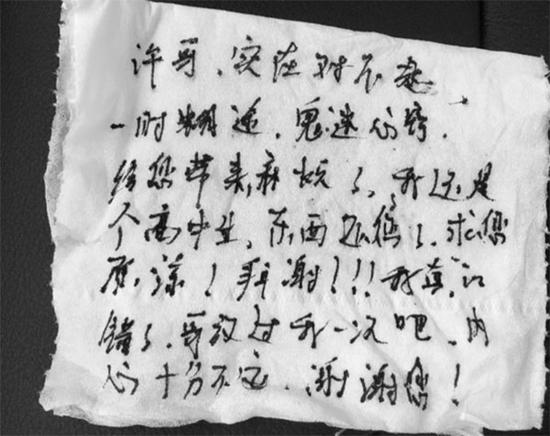 许哥，实在对不起
一时糊涂，鬼迷心窍，
给您带来麻烦了，我还是
个高中生，东西还您了，求您
原谅！拜谢！！！我真认
错了，哥放过我一次吧，内
心十分不安，谢谢您！